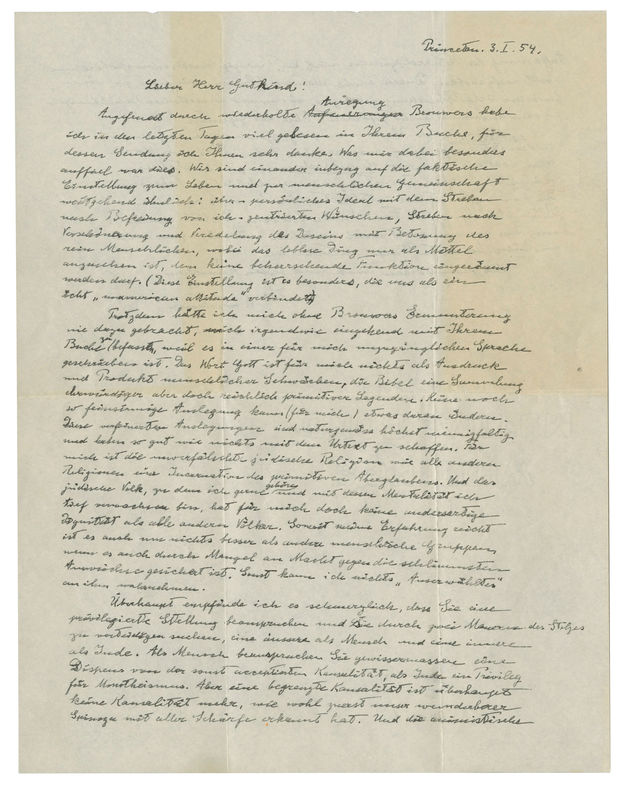 Princeton. 3. I. 54.
Lieber Herr Gutkind!
Anregung
Angefeuert durch wiederholte Brouwers habe
ich in den letzten Tagen viel gelesen in Ihrem Buche, für
dessen Sendung ich Ihnen sehr danke. Was mir dabei besonders
auffiel war dies. Wir sind einander inbezug auf die faktische
Einstellung zum Leben und zur menschlichen Gemeinschaft
weitgehend ähnlich: über-persönliches Ideal mit dem Streben
nach Befreiung von ich-zentrierten Wünschen, Streben nach
Verschönerung und Veredelung des Daseins mit Betonung des
rein Menschlichen, wobei das leblose Ding nur als Mittel
anzusehen ist, dem keine beherrschende Funktion eingeräumt
werden darf. (Diese Einstellung ist es besonders, die uns als ein
echt „unamerican attitude" verbindet)
Trotzdem hätte ich mich ohne Brouwers Ermunterung
nie dazu gebracht, mich irgendwie eingehend mit Ihrem
Buche zu befassen, weil es in einer für mich unzugänglichen Sprache
geschrieben ist. Das Wort Gott ist für mich nichts als Ausdruck
und Produkt menschlicher Schwächen, die Bibel eine Sammlung
ehrwürdiger aber doch reichlich primitiver Legenden. Keine noch
so feinsinnige Auslegung kann (für mich) etwas daran ändern.
Diese verfeinerten Auslegungen sind naturgemäss höchst mannigfaltig
und haben so gut wie nichts mit dem Urtext zu schaffen. Für
mich ist die unverfälschte jüdische Religion wie alle anderen
Religionen eine Incarnation des primitiven Aberglaubens. Und das
jüdische Volk, zu dem ich gerne gehöre und mit dessen Mentalität ich
tief verwachsen bin, hat für mich doch keine andersartige
Dignität als alle anderen Völker. Soweit meine Erfahrung reicht
ist es auch um nichts besser als andere menschliche Gruppen
wenn es auch durch Mangel an Macht gegen die schlimmsten
Auswüchse gesichert ist. Sonst kann ich nichts „Auserwähltes"
an ihm wahrnehmen.
Überhaupt empfinde ich es schmerzlich, dass Sie eine
privilegierte Stellung beanspruchen und Sie durch zwei Mauern des Stolzes
zu verteidigen suchen, eine äussere als Mensch und eine innere
als Jude. Als Mensch beanspruchen Sie gewissermassen einen
Dispens von der sonst acceptierten Kausalität, als Jude ein Privileg
für Monotheismus. Aber eine begrenzte Kausalität ist überhaupt
keine Kausalität mehr, wie wohl zuerst unser wunderbarer
Spinoza mit aller Schärfe erkannt hat. Und die animistische